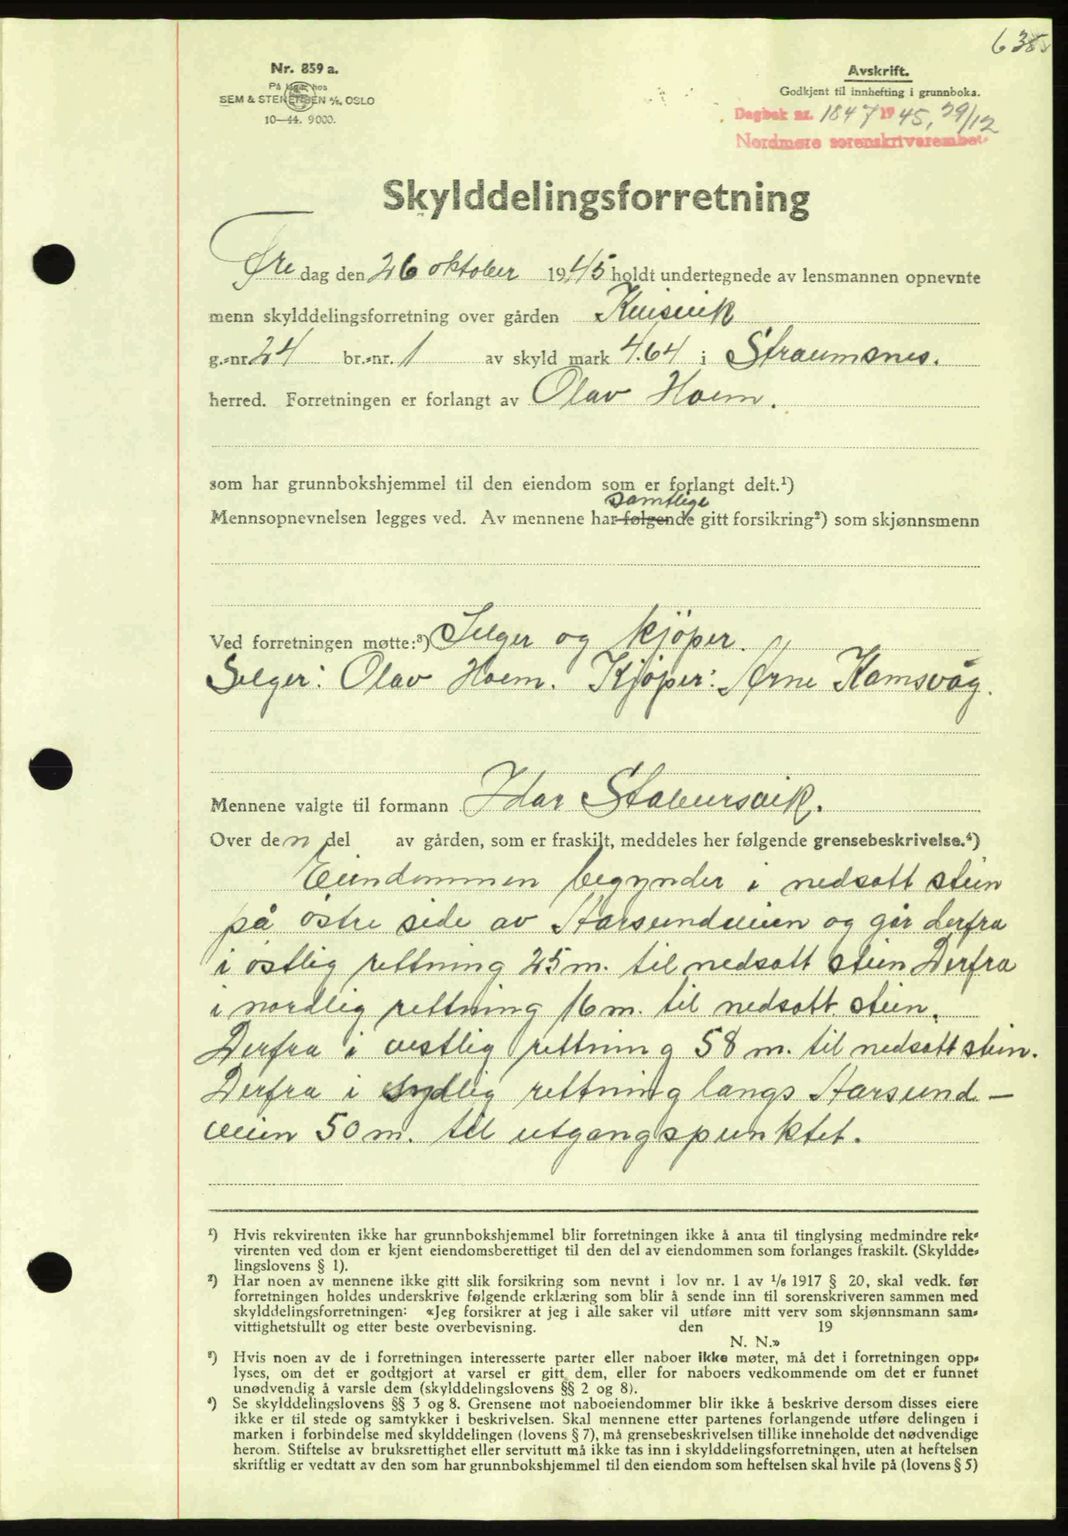 638
Nr. 859 a.
På lager hos
SEM & STENERSEN A/S, OSLO
10—44. 9000.
Avskrift.
Godkjent til innhefting i grunnboka.
Dagbok nr. 1847 1945, 29/12
Nordmøre sorenskriverembet
Skylddelingsforretning
Fre dag den 26 oktober 1945 holdt undertegnede av lensmannen opnevnte
menn skylddelingsforretning over gården Kvisvik
g.-nr. 24 br.-nr. 1 av skyld mark 4.64 i Straumsnes.
herred. Forretningen er forlangt av Olav Hoem.
som har grunnbokshjemmel til den eiendom som er forlangt delt.¹)
samtlige
Mennsopnevnelsen legges ved. Av mennene har følgende gitt forsikring²) som skjønnsmenn
Ved forretningen møtte:³) Selger og kjöper.
Selger: Olav Hoem. Kjöper: Arne Kamsvåg.
Mennene valgte til formann Idar Stabursvik.
Over den del av gården, som er fraskilt, meddeles her følgende grensebeskrivelse.⁴)
Eiendommen begynder i nedsatt stein
på östre side av Aarsundveien og går derfra
i östlig rettning 25 m. til nedsatt stein Derfra
i nordlig rettning 16 m. til nedsatt stein.
Derfra i vestlig rettning 58 m. til nedsatt stein.
Derfra i sydlig rettning langs Aarsund—
veien 50 m. til utgangspunktet.
¹) Hvis rekvirenten ikke har grunnbokshjemmel blir forretningen ikke å anta til tinglysing medmindre rek-
virenten ved dom er kjent eiendomsberettiget til den del av eiendommen som forlanges fraskilt. (Skyldde-
lingslovens § 1).
²) Har noen av mennene ikke gitt slik forsikring som nevnt i lov nr. 1 av 1/6 1917 § 20, skal vedk. før
forretningen holdes underskrive følgende erklæring som blir å sende inn til sorenskriveren sammen med
skylddelingsforretningen: «Jeg forsikrer at jeg i alle saker vil utføre mitt verv som skjønnsmann sam-
vittighetsfullt og etter beste overbevisning. den 19
N. N.»
³) Hvis noen av de i forretningen interesserte parter eller naboer ikke møter, må det i forretningen opp-
lyses, om det er godtgjort at varsel er gitt dem, eller for naboers vedkommende om det er funnet
unødvendig å varsle dem (skylddelingslovens §§ 2 og 8).
⁴) Se skylddelingslovens §§ 3 og 8. Grensene mot naboeiendommer blir ikke å beskrive dersom disses eiere
ikke er til stede og samtykker i beskrivelsen. Skal mennene etter partenes forlangende utføre delingen i
marken i forbindelse med skylddelingen (lovens § 7), må grensebeskrivelsen tillike inneholde det nødvendige
herom. Stiftelse av bruksrettighet eller servitutt må ikke tas inn i skylddelingsforretningen, uten at heftelsen
skriftlig er vedtatt av den som har grunnbokshjemmel til den eiendom som heftelsen skal hvile på (lovens § 5)